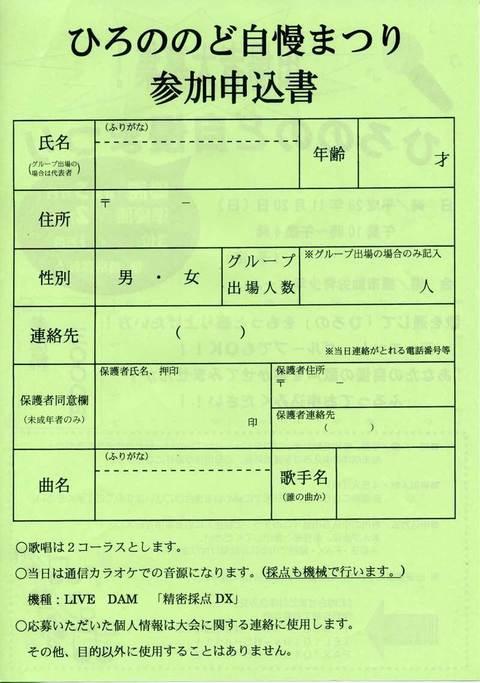 ひろののど自慢まつり
参加申込書
氏名
(グループ出場の
場合は代表者)
(ふりがな)
年齢
才
住所
〒 －
性別
男 ・ 女
グループ
出場人数
※グループ出場の場合のみ記入
人
連絡先
( )
※当日連絡がとれる電話番号等
保護者同意欄
(未成年者のみ)
保護者氏名、押印
印
保護者住所
〒 －
保護者連絡先
( )
曲名
(ふりがな)
歌手名
(誰の曲か)
○歌唱は２コーラスとします。
○当日は通信カラオケでの音源になります。(採点も機械で行います。)
機種：LIVE DAM 「精密採点 DX」
○応募いただいた個人情報は大会に関する連絡に使用します。
その他、目的以外に使用することはありません。